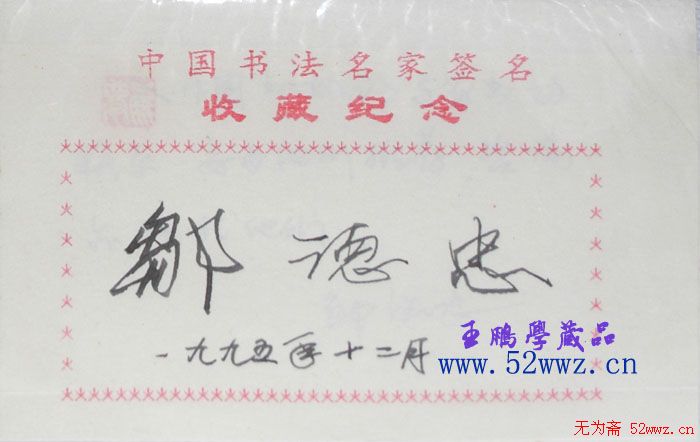 中国书法名家签名
收藏纪念
鄒德忠
一九九五年十二月
王鹏學藏品
www.52wwz.cn
无为斋 52wwz.cn